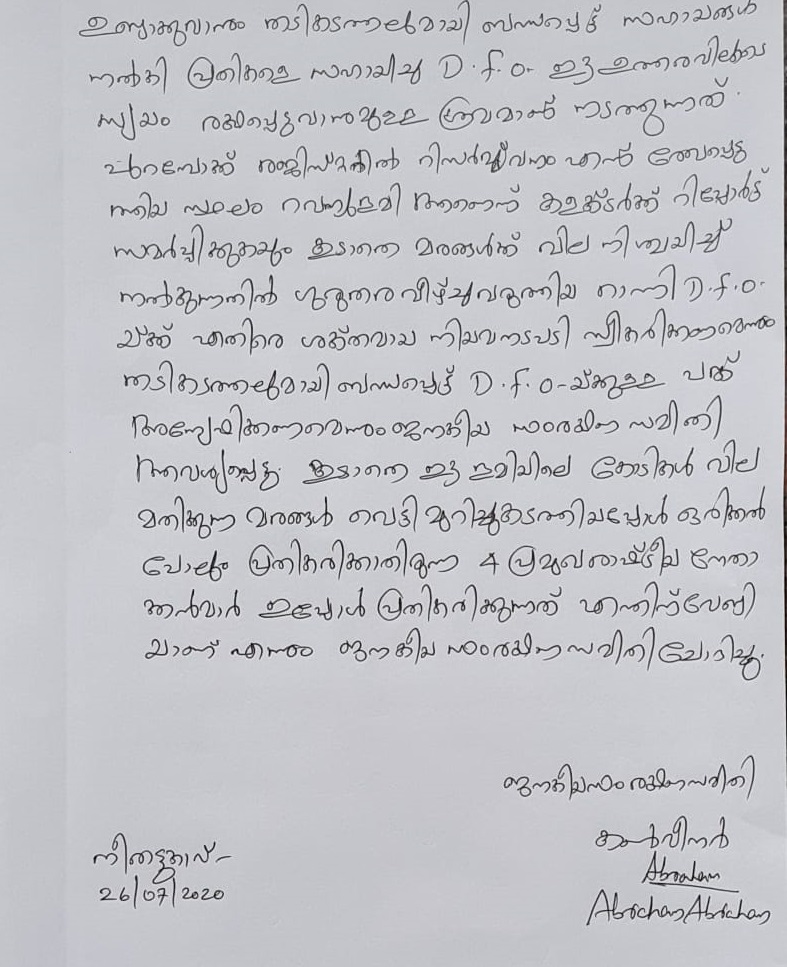 ഉണ്ടാക്കുവാനും തടികടത്തലുമായി ബന്ധപ്പെട്ട് സഹായങ്ങൾ
നൽകി പ്രതികളെ സഹായിച്ച D.f.o. ഈ ഉത്തരവിലൂടെ
സ്വയം രക്ഷപ്പെടുവാനുമുള്ള ശ്രമമാണ് നടത്തുന്നത്.
പുറമ്പോക്ക് രജിസ്റ്ററിൽ റിസർവ്വ് വനം എന്ന് രേഖപ്പെടു
ത്തിയ സ്ഥലം റവന്യുഭൂമി ആണെന്ന് കളക്ടർക്ക് റിപ്പോർട്ട്
സമർപ്പിക്കുകയും കൂടാതെ മരങ്ങൾക്ക് വില നിശ്ചയിച്ച്
നൽകുന്നതിൽ ഗുരുതര വീഴ്ച്ചവരുത്തിയ റാന്നി D.f.o.
യ്ക്ക് എതിരെ ശക്തമായ നിയമനടപടി സ്വീകരിക്കണമെന്നും
തടികടത്തലുമായി ബന്ധപ്പെട്ട് D.f.o-യ്ക്കുള്ള പങ്ക്
അന്വേഷിക്കണമെന്നും ജനകീയ സംരക്ഷണ സമിതി
ആവശ്യപ്പെട്ടു. കൂടാതെ ഈ ഭൂമിയിലെ കോടികൾ വില
മതിക്കുന്ന മരങ്ങൾ വെട്ടി മുറിച്ചുകടത്തിയപ്പോൾ ഒരിക്കൽ
പോലും പ്രതികരിക്കാതിരുന്ന 4 പ്രമുഖരാഷ്ട്രീയ നേതാ
ക്കൻമാർ ഇപ്പോൾ പ്രതികരിക്കുന്നത് എന്തിന്വേണ്ടി
യാണ് എന്നും ജനകീയ സംരക്ഷണസമിതി ചോദിച്ചു.
ജനകീയസംരക്ഷണസമിതി
കൺവീനർ
Abraham
Abrachan Abrahan
26/07/2020